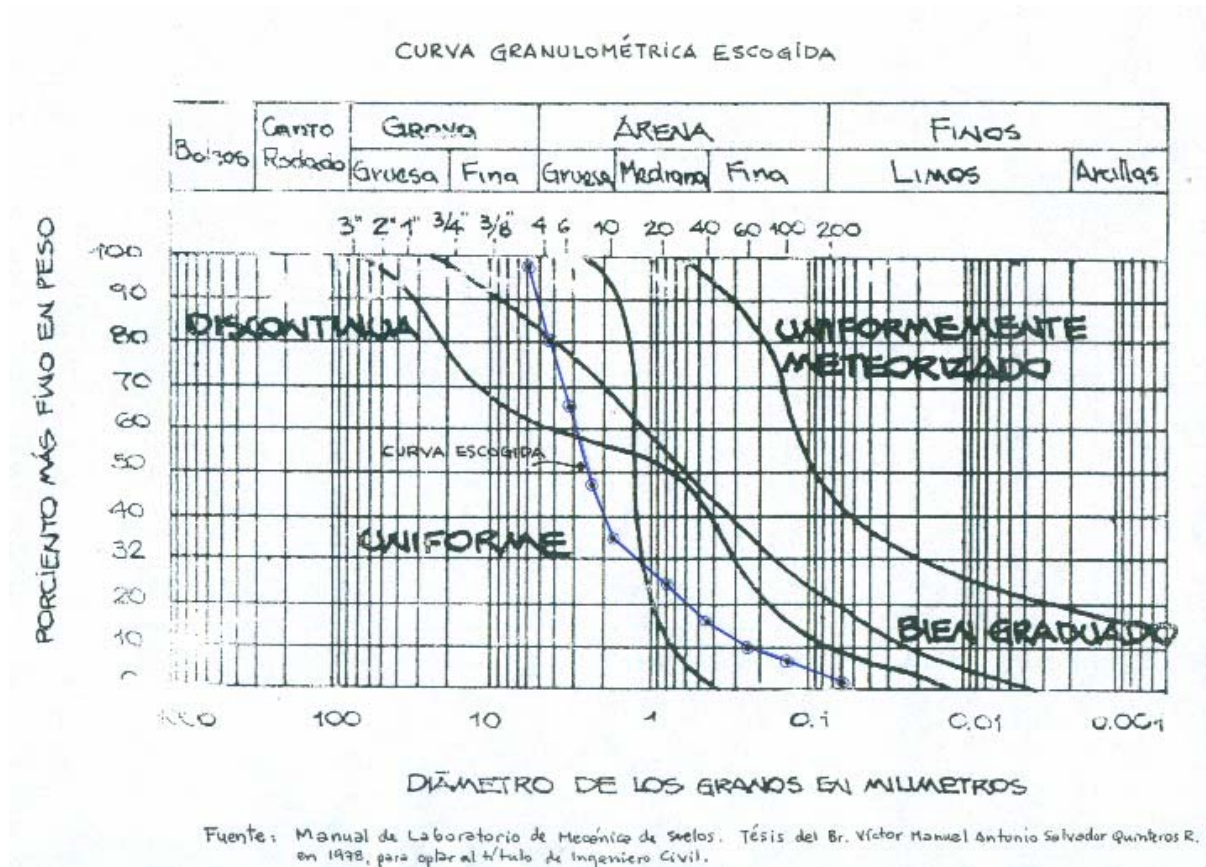 CURVA GRANULOMÉTRICA ESCOGIDA
Canto Rodado
GRAVA
ARENA
FINOS
Gruesa Fina Gruesa Mediana Fina LIMOS Arcillas
3" 2" 1" 3/4" 3/8" 4 6 10 20 40 60 100 200
PORCIENTO MÁS FINO EN PESO
100
90
80
70
60
50
40
32
20
10
DISCONTINUA
UNIFORMEMENTE
METEORIZADO
CURVA ESCOGIDA
UNIFORME
BIEN GRADUADO
100 10 1 0.1 0.01 0.001
DIÁMETRO DE LOS GRANOS EN MILIMETROS
Fuente: Manual de Laboratorio de Mecánica de suelos. Tésis del Br. Víctor Manuel Antonio Salvador Quinteros R.
en 1978, para optar al título de Ingeniero Civil.